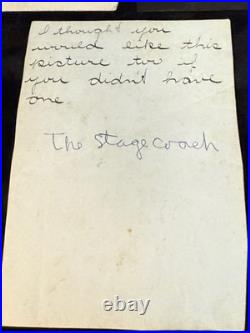 I thought you
would like this
picture too if
you didn't have
one
The Stagecoach
hobbybayb.com